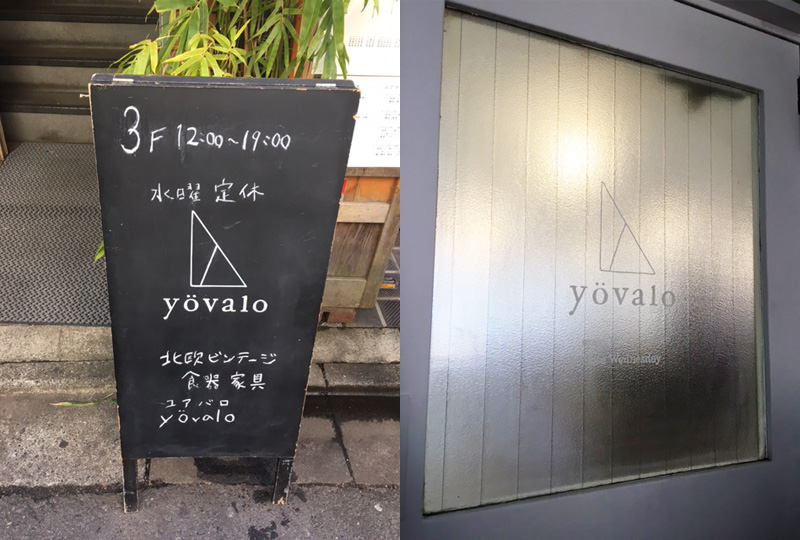 3F 12:00~19:00
水曜 定休
yövalo
北欧ビンテージ
食器 家具
ユアバロ
yövalo
yövalo
Wednesday